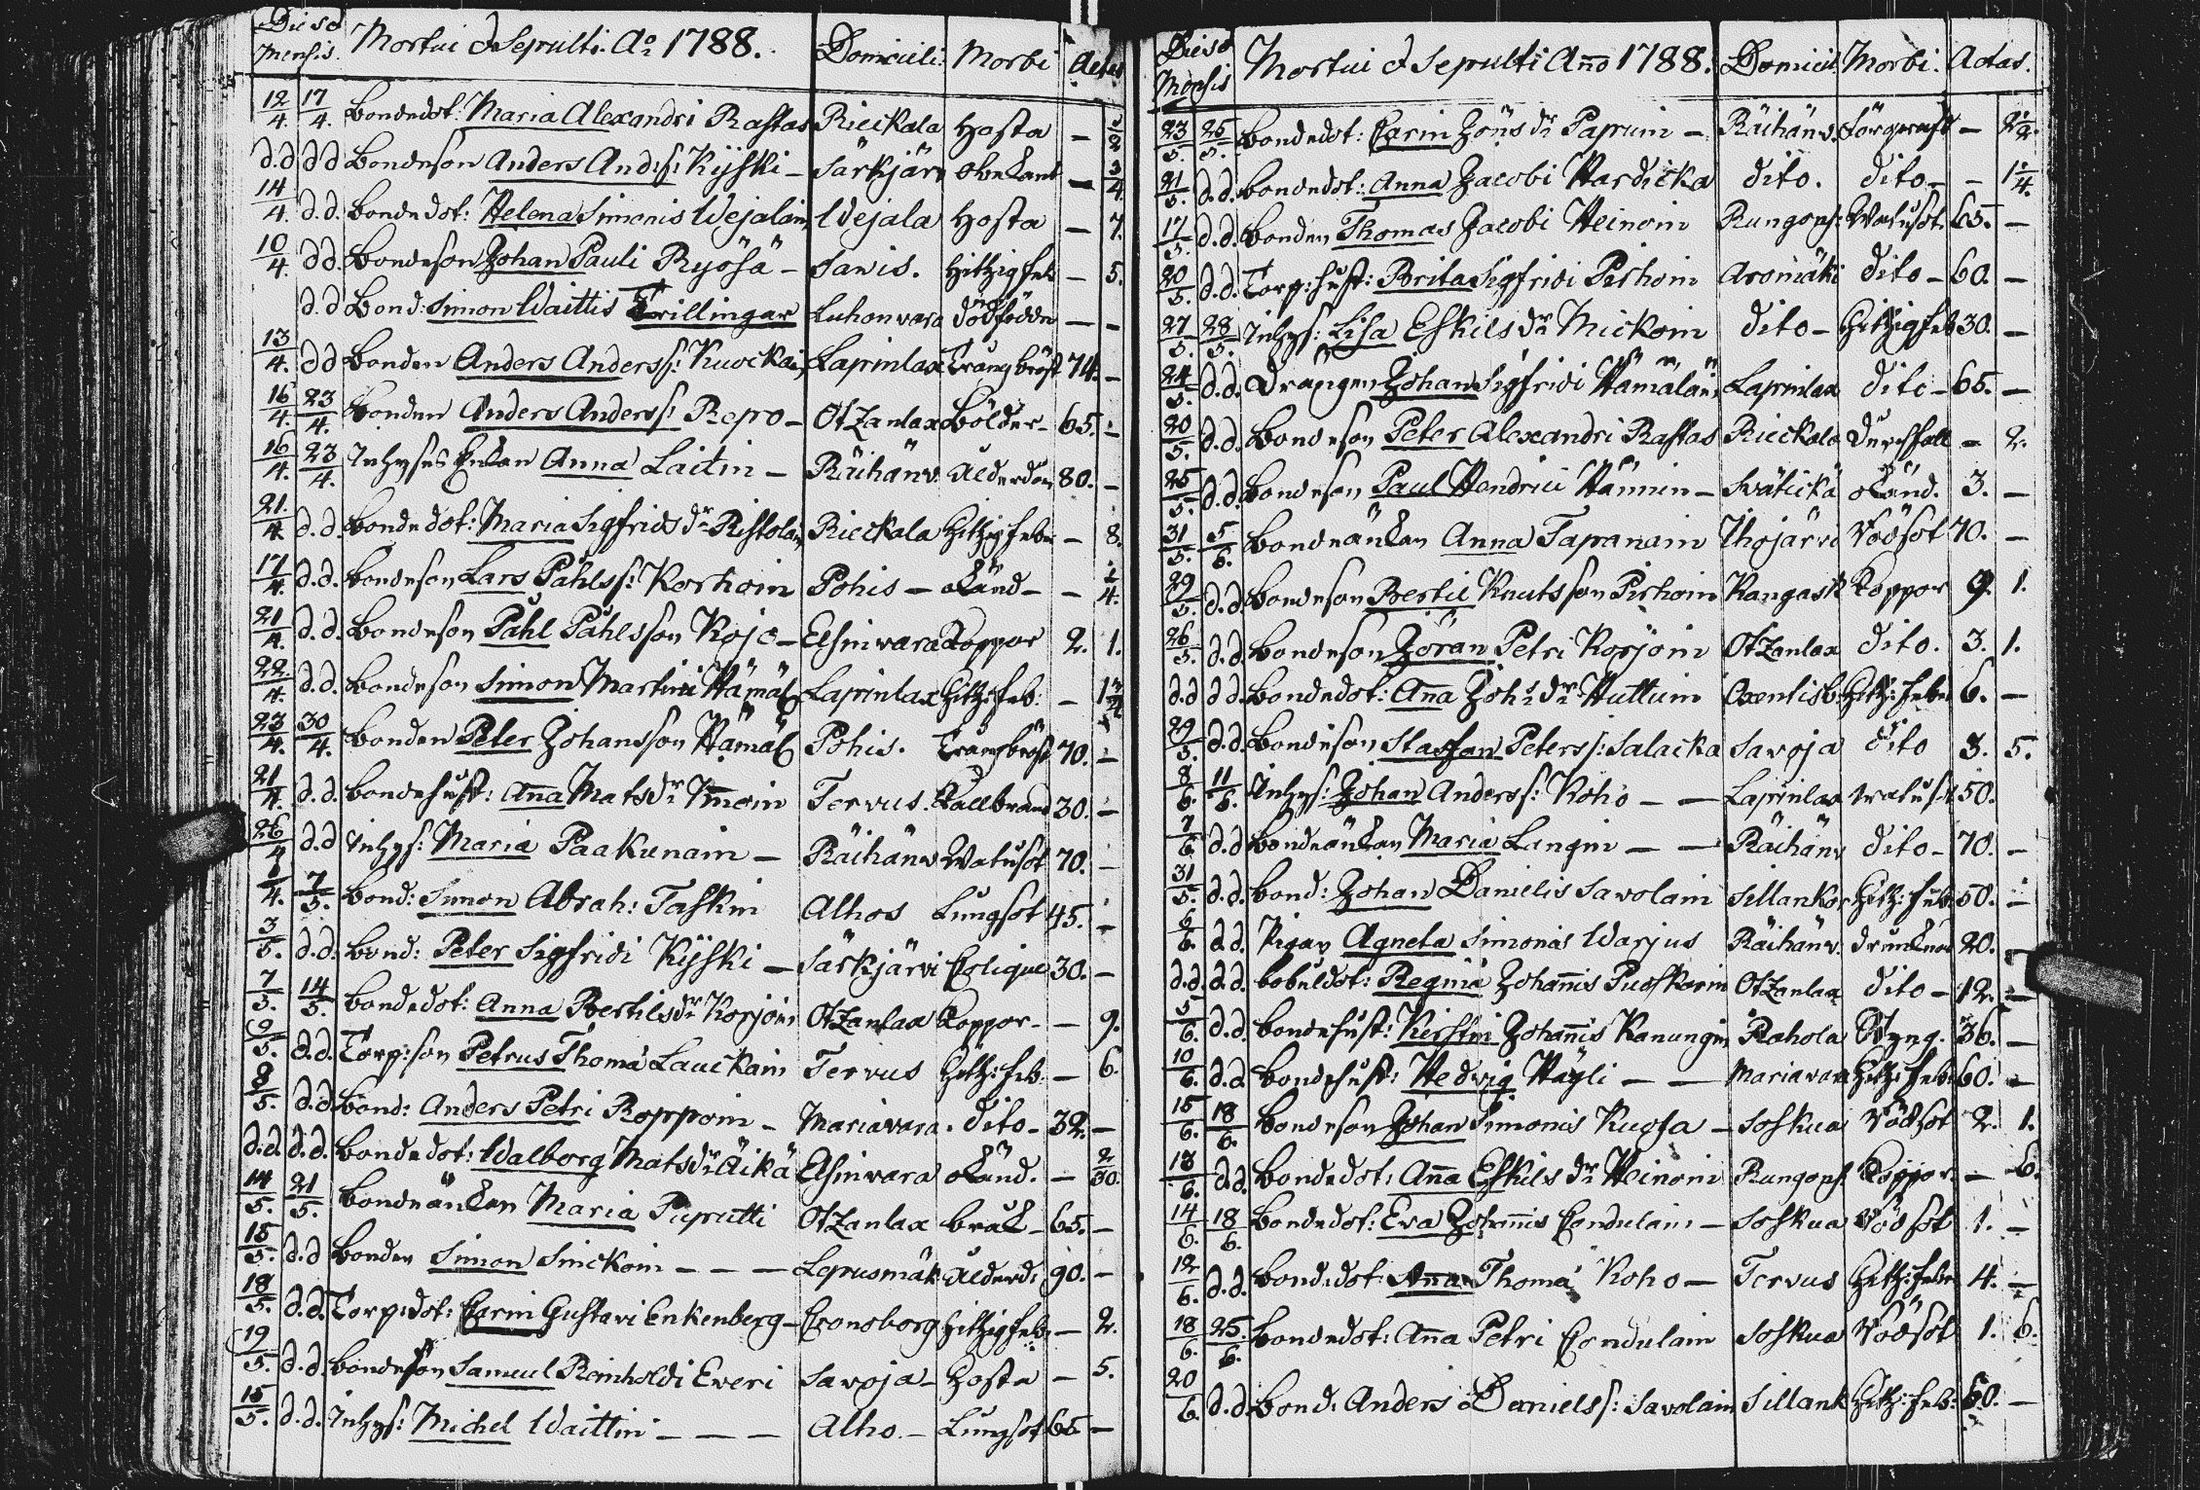 Dies & Mensis. Mortui & Sepulti. Ao 1788. Domicili. Morbi Aetas
12/4. 17/4. Bondedot: Maria Alexandri Rastas Rieckala Hosta — 1/2
d.d d d Bondeson Anders Anders: Kyski — Särkjärv okänd — 3/4.
14/4. d.d. Bondedot: Helena Simonis Wejalain Wejala Hosta — 7.
10/4. d d Bondeson Johan Pauli Ryösä — Sawis. Hitzig feb — 5.
d.d Bond: Simon Waittis Trillingar Luhonvara dödfödde — —
13/4. d d Bonden Anders Anderss: Kuockai Lapinlax Trångbröst 74. —
16/4. 23/4. Bonden Anders Anderss: Repo — Otzanlax Bölder — 65. —
16/4. 23/4. Inhyses Enkan Anna Laitin — Räihänv. Ålderdom 80. —
21./4. d.d. Bondedot: Maria Sigfrids dr Ristolain Rieckala Hitzig feb — 8.
17/4. d.d. Bondeson Lars Påhlss: Korhoin Pohis — okänd — — 1/4.
21/4. d.d. Bondeson Påhl Påhlsson Kojo — Elsinvara Koppor 2. 1.
22./4. d.d. Bondeson Simon Martini Hämäl Lapinlax Hitz: feb: — 1 3/4
23/4. 30/4. Bonden Peter Johansson Hämäl Pohis. Trångbröst 70. —
21/4. d.d. Bondehust: Anna Mats dr Immoin Tervus. Kallbrand 30. —
26/4 d.d Inhys: Maria Paakunain — Räihänv Watusot 70. —
1/4. 7/5. Bond: Simon Abrah: Taskin Alhos Lungsot 45. —
3/5. d.d. Bond: Peter Sigfridi Kyski — Särkjärvi Colique 30. —
7/5. 14/5. Bondedot: Anna Bertils dr Korjoin Otzanlax Koppor — — 9.
9/5. d.d. Torp: son Petrus Thomæ Lauckain Tervus Hitz: feb. — 6.
8/5. d.d. Bond: Anders Petri Roppoin — Mariavara. dito — 32. —
d.d. d.d. Bondedot: Walborg Mats dr Äikä Elsinvara okänd. — 2/30.
14/5. 21/5. Bondeänkan Maria Puputti Otzanlax bråck — 65. —
15/5. d.d Bonden Simon Sinckoin — — — Lepusmäk Ålderd: 90. —
18/5. d.d. Torp: dot: Carin Gustavi Enkenberg — Cronoborg Hitzig feb: — 2.
19/5. d.d Bondeson Samuel Reinholdi Eweri Savoja — Hosta — 5.
15/5. d.d. Inhys: Michel Waittin — — — Alho. — Lungsot 65 —
Dies & Mensis Mortui & Sepulti Anno 1788. Domicil. Morbi. Aetas.
23/5. 25/5. Bondedot: Carin Jöns dr Papuin — Räihänv. — 2 1/2.
21/5. d.d. Bondedot: Anna Jacobi Hardicka dito. dito — — 1 1/4.
17/5 d.d. Bonden Thomas Jacobi Heinoin Rungoph: Watusot. 65. —
20/5. d.d. Torp: hust: Brita Sigfridi Pirhoin Aromäki dito — 60. —
27/5. 28/5. Inhys: Lisa Eskils dr Mickoin dito — Hitzig feb 30. —
24/5. d.d. Drängen Johan Sigfridi Hämäläin Lapinlax dito — 65. —
20/5. d.d. Bondeson Peter Alexandri Rastas Rieckala Durchfall — 2.
25/5 d.d. Bondeson Paul Hendrici Hännin — Svätickä okänd. 3. —
31/5. 5/6. Bondeänkan Anna Tapanain Ihojärvi Rödsot 70. —
29/5. d.d. Bondeson Bertil Knutsson Pirhoin Kangask Koppor 9. 1.
26/5. d.d. Bondeson Jöran Petri Korjoin Otzanlax dito. 3. 1.
d.d d d. Bondedot: Anna Johs dr Huttuin Oxentisb: Hitz: feber 6. —
29/5. d.d. Bondeson Staffan Peterss: Salacka Savoja dito 3. 5.
8/6. 11/6. Inhys: Johan Anderss: Koho — — Lapinlax Watusot 50. —
7/6. d.d. Bondeänkan Maria Langin — — Räihänv dito — 70. —
31/5. d.d. Bond: Johan Danielis Savolain Sillankor Hitz: feb. 50. —
6/6. d.d. Pigan Agneta Simonis Warjus Räihänv. drunknad 20. —
d.d d.d. Dot: Regina Johannis Puoskarin Otzanlax dito — 12. —
5/6. d.d. Bondehust: Kirstin Johannis Kanungin Rahola Styng. 36. —
10/6. d.d. Bondehust: Hedvig Häyli — — Mariavara Hitz: feb: 60. —
15/6. 18/6. Bondeson Johan Simonis Kuosa — Soskua Rödsot 2. 1.
13/6. d.d. Bondedot: Anna Eskils dr Heinoin Rungoph. Koppor. — 6.
14/6. 18/6. Bondedot: Eva Johannis Condulain — Soskua Rödsot 1. —
12/6. d.d. Bondedot: Anna Thomæ Koho — Tervus Hitz: feber 4. —
18/6. 25./6. Bondedot: Anna Petri Condulain Soskua Rödsot 1. 6.
20/6. d.d. Bond: Anders Daniels s: Savolain Sillank Hitz: feb: 60. —